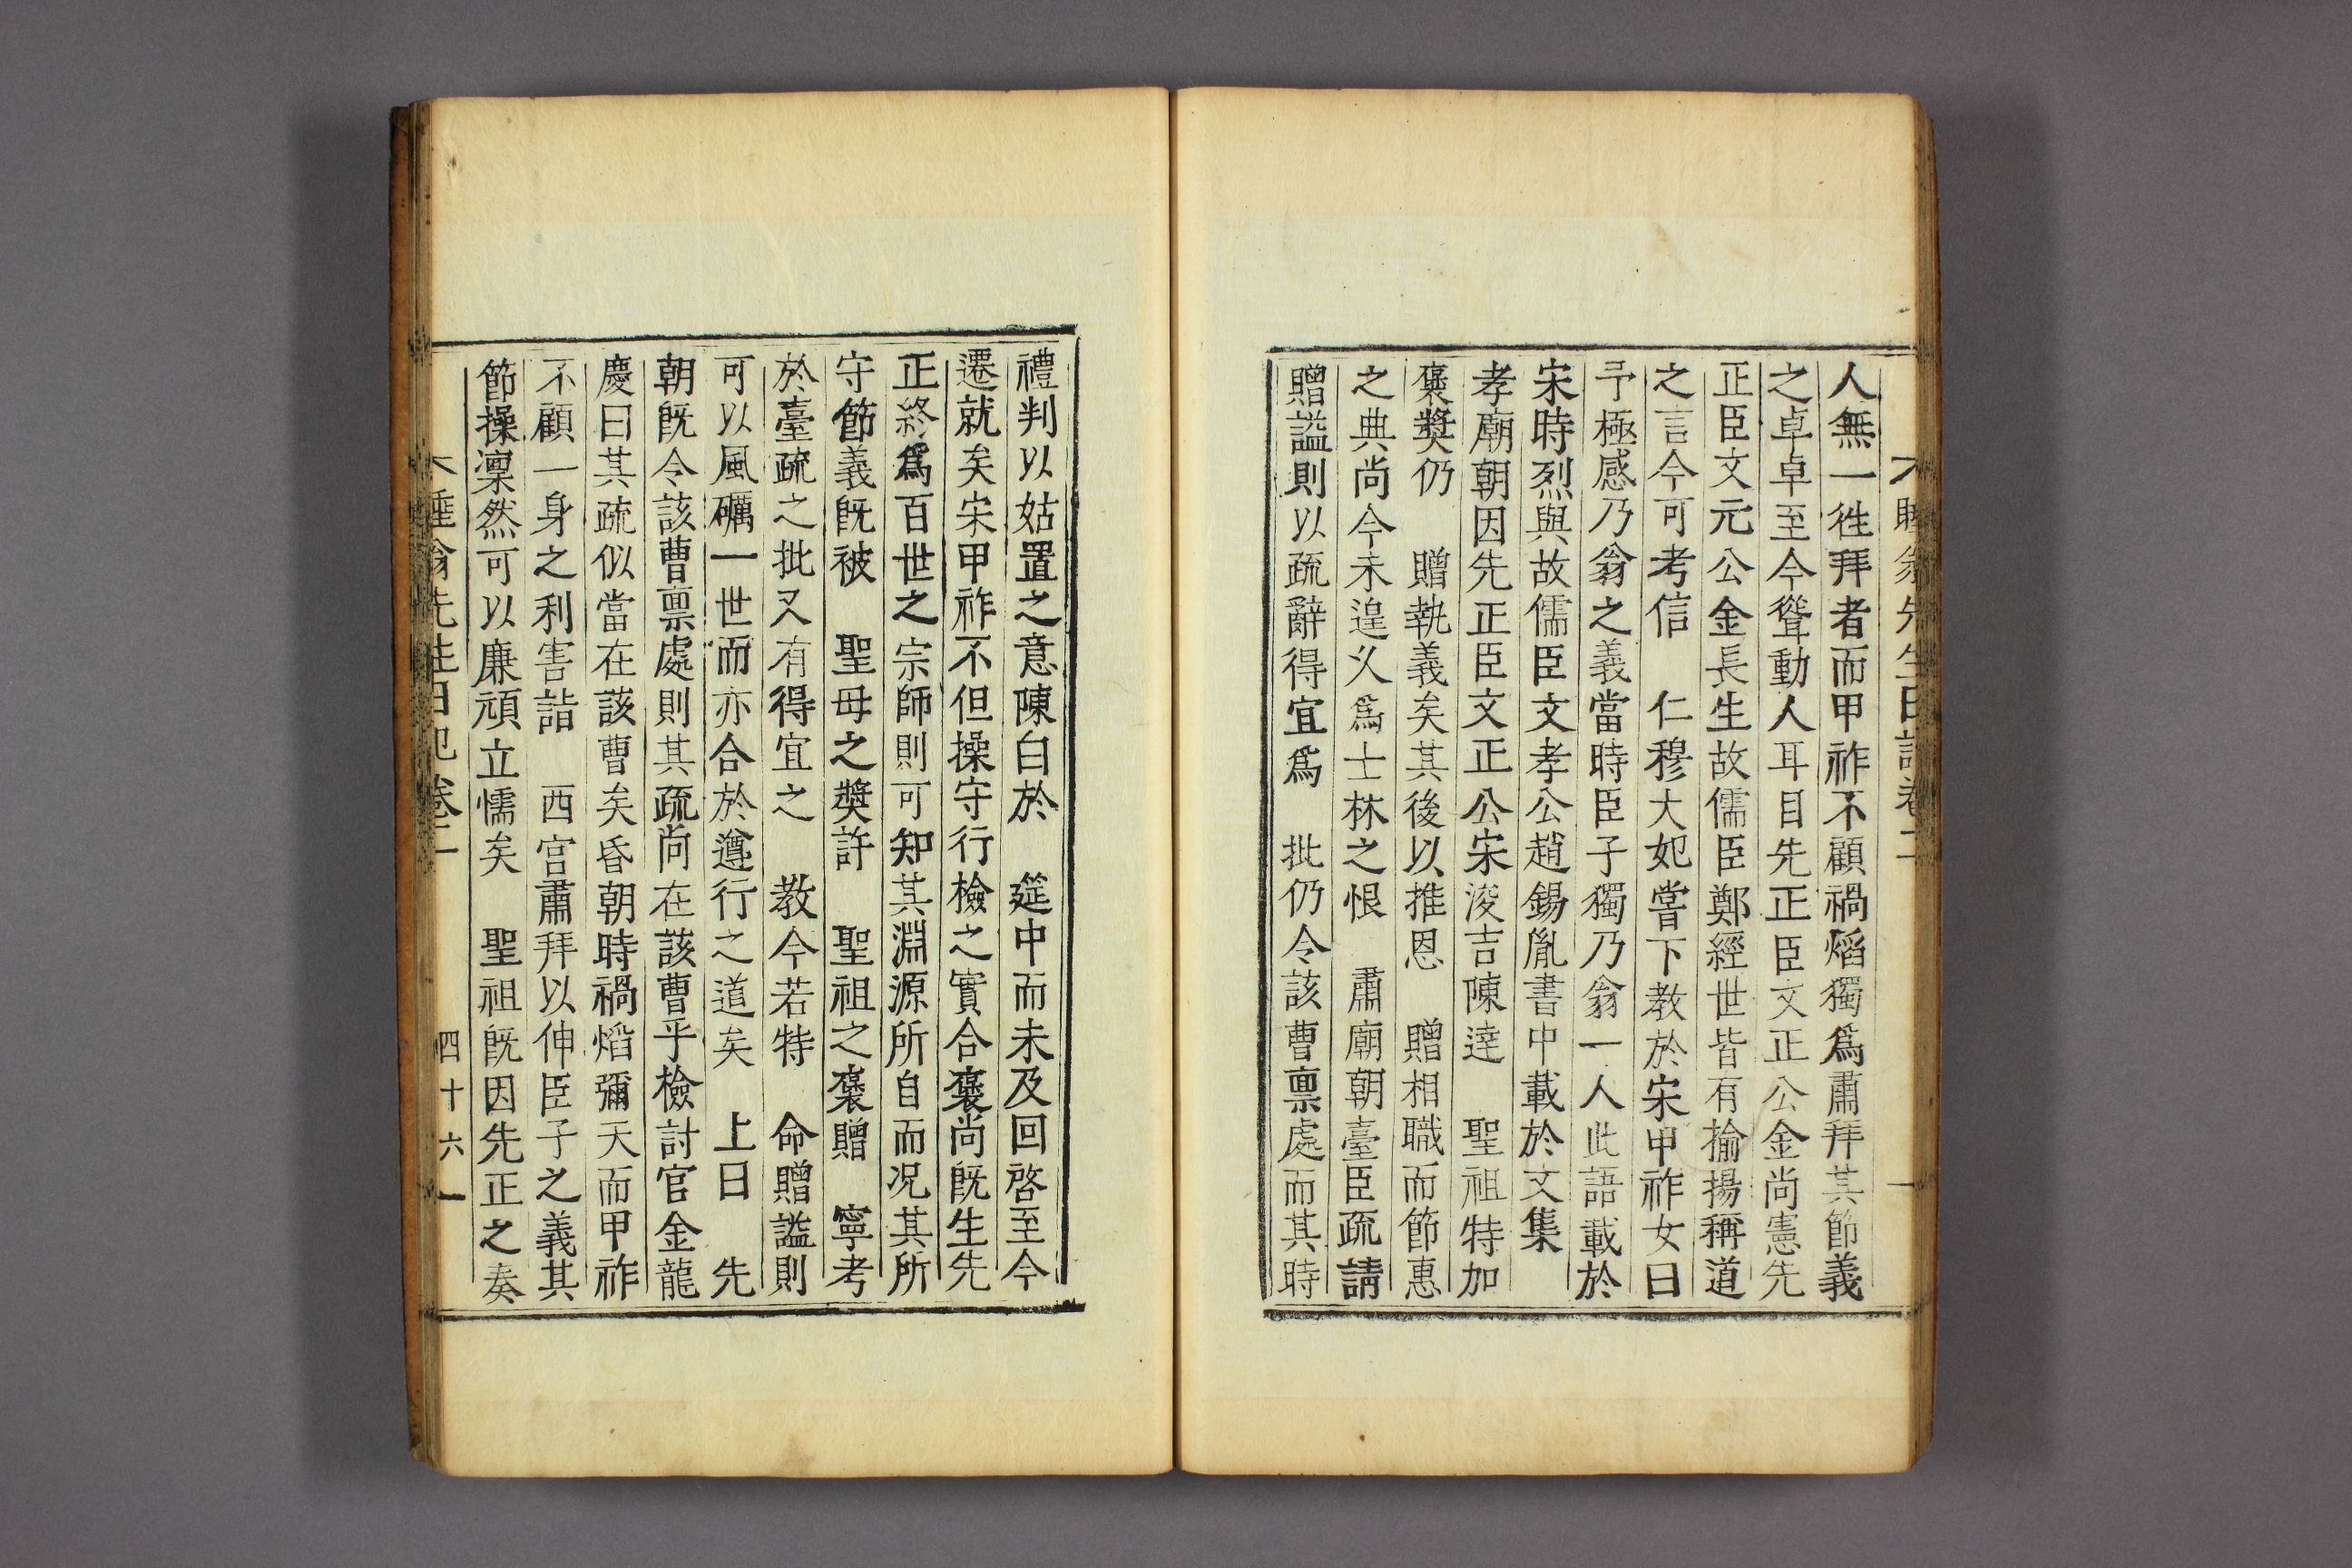 睡翁先生日記卷二
人無一徃拜者而甲祚不顧禍熖獨爲肅拜其節義
之卓卓至今聳動人耳目先正臣文正公金尚憲先
正臣文元公金長生故儒臣鄭經世皆有揄揚稱道
之言今可考信　仁穆大妃嘗下教於宋甲祚女曰
予極感乃翁之義當時臣子獨乃翁一人此語載於
宋時烈與故儒臣文孝公趙錫胤書中載於文集
孝廟朝因先正臣文正公宋浚吉陳達　聖祖特加
褒奬仍　贈執義矣其後以推恩　贈相職而節惠
之典尚今未遑乆爲士林之恨　肅廟朝臺臣疏請
贈謚則以疏辭得宜爲　批仍令該曹禀處而其時
禮判以姑置之意陳白於　筵中而未及回啓至今
遷就矣宋甲祚不但操守行檢之實合褒尚旣生先
正終爲百世之宗師則可知其淵源所自而况其所
守節義旣被　聖母之奬許　聖祖之褒贈　寧考
於臺疏之批又有得宜之　教今若特　命贈謚則
可以風礪一世而亦合於遵行之道矣　上曰　先
朝旣令該曹禀處則其疏尚在該曹乎檢討官金龍
慶曰其疏似當在該曹矣昏朝時禍熖彌天而甲祚
不顧一身之利害詣　西宮肅拜以伸臣子之義其
節操凜然可以廉頑立懦矣　聖祖旣因先正之奏
睡翁先生日記卷二　四十六